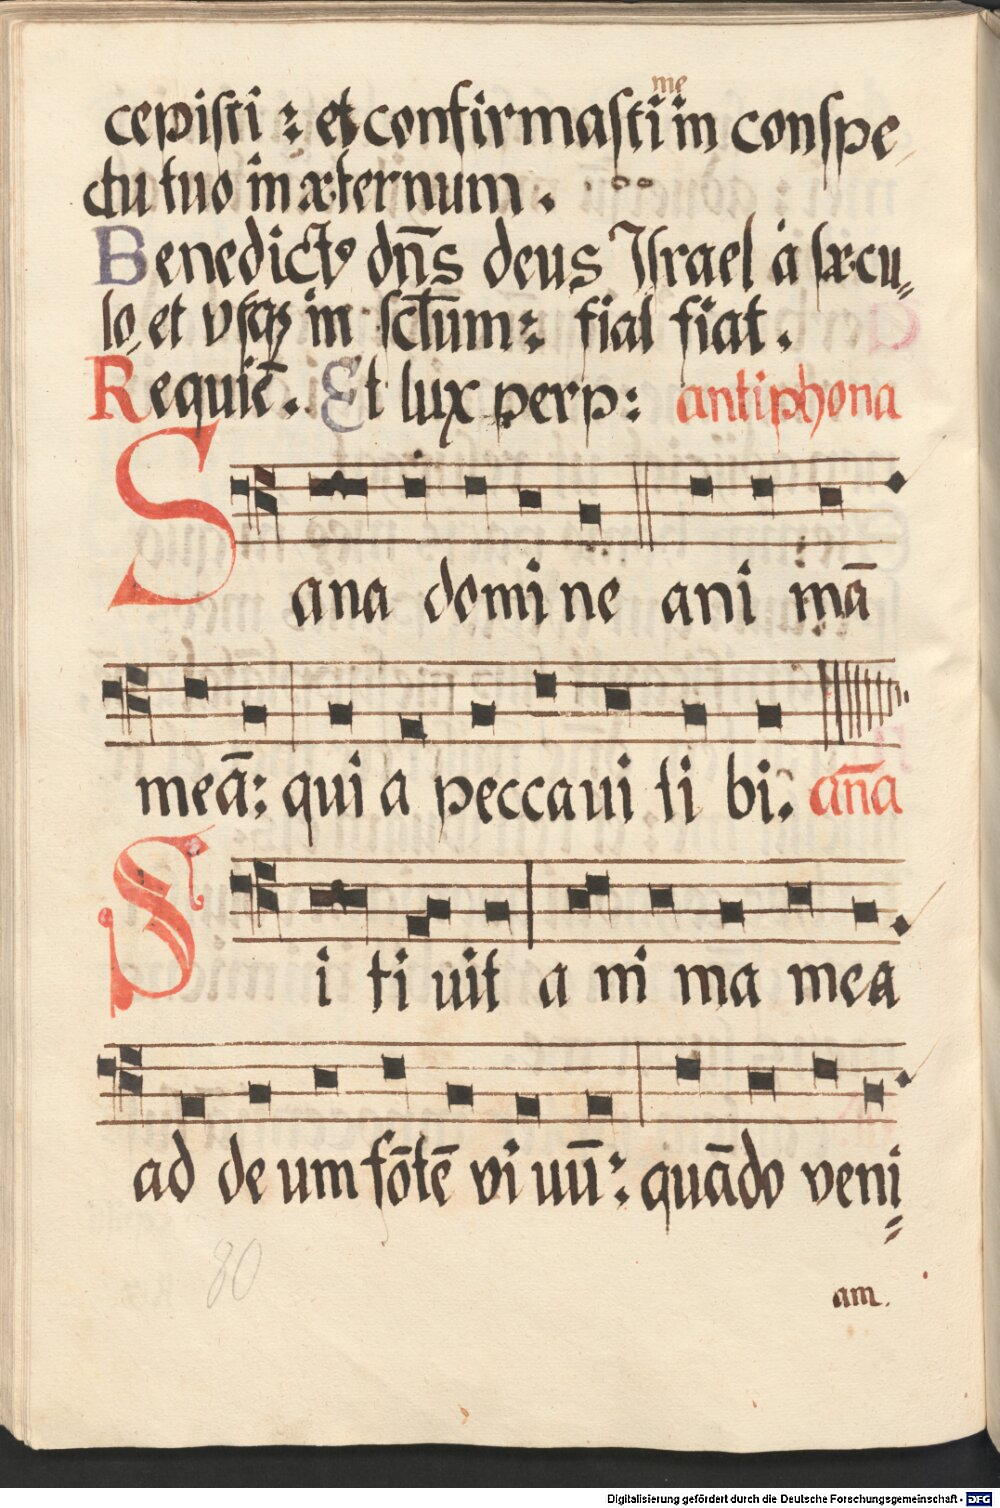 me
cepisti : et confirmasti in conspe
ctu tuo in æternum .
Benedictꝰ dn̄s deus Israel à sæcu„
lo, et vsqꝫ in scl̄um : fiat fiat .
Requiē . Et lux perp : antiphona
S
ana domi ne ani mā
meā : qui a peccaui ti bi . an̄a
S
i ti uit a ni ma mea
ad de um fōtē vi uū : quādo veni„
80
am .
Digitalisierung gefördert durch die Deutsche Forschungsgemeinschaft - DFG